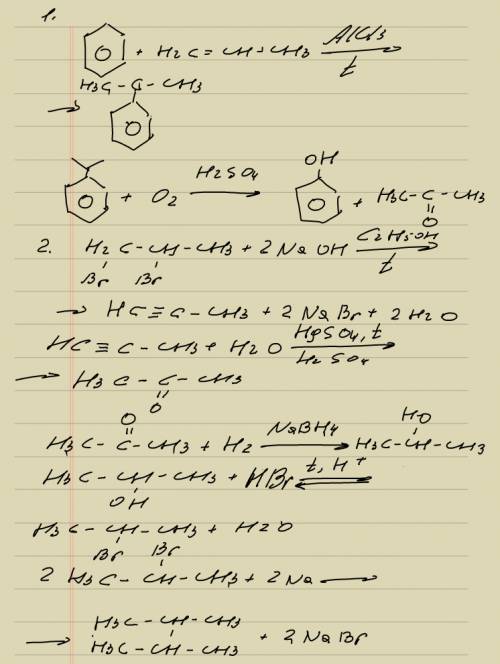 1.
+ H2C = CH - CH3 AlCl3 t
H3C - C - CH3
→
OH
+ O2 H2SO4 → + H3C - C - CH3
O
2. H2C - CH - CH3 + 2 NaOH C2H5OH t →
Br Br
→ HC ≡ C - CH3 + 2 NaBr + 2 H2O
HC ≡ C - CH3 + H2O HgSO4, t H2SO4 →
→ H3C - C - CH3
O
O HO
H3C - C - CH3 + H2 NaBH4 → H3C - CH - CH3
H3C - CH - CH3 + HBr t, H+ ⇌
OH
H3C - CH - CH3 + H2O
Br Br
2 H3C - CH - CH3 + 2 Na →
H3C - CH - CH3
→ H3C - CH - CH3 + 2 NaBr